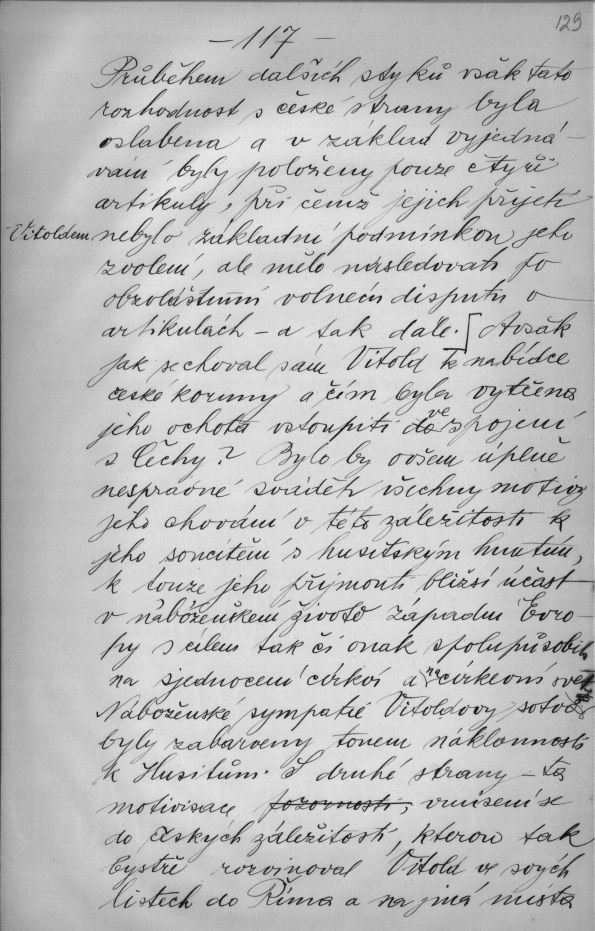 129
– 117 –
Průběhem dalších styků však tato
rozhodnost s české strany byla
oslabena a v základ vyjedná-
vání byly položeny pouze čtyři
artikuly, při čemž jejich přijetí
Vitoldem nebylo základní podmínkou jeho
zvolení, ale mělo následovati po
obzvláštním volném disputu o
artikulách – a tak dále. [Avšak
jak se choval sám Vitold k nabídce
české koruny a čím byla vytčena
jeho ochota vstoupiti do ve spojení
s Čechy? Bylo by ovšem úplně
nesprávné sváděti všechny motivy
jeho chování v této záležitosti k
jeho soucítění s husitským hnutím,
k touze jeho přijmouti bližší účast
v náboženském životě západní Evro-
py s cílem tak či onak spolupůsobiti
na sjednocení církví a na církevní svět
Náboženské sympatie Vitoldovy sotva
byly zabarveny tonem náklonnosti
k Husitům. S druhé strany – ta
motivisace pozornosti, vmísení se
do českých záležitostí, kterou tak
bystře rozvinoval Vitold ve svých
listech do Říma a na jiná místa